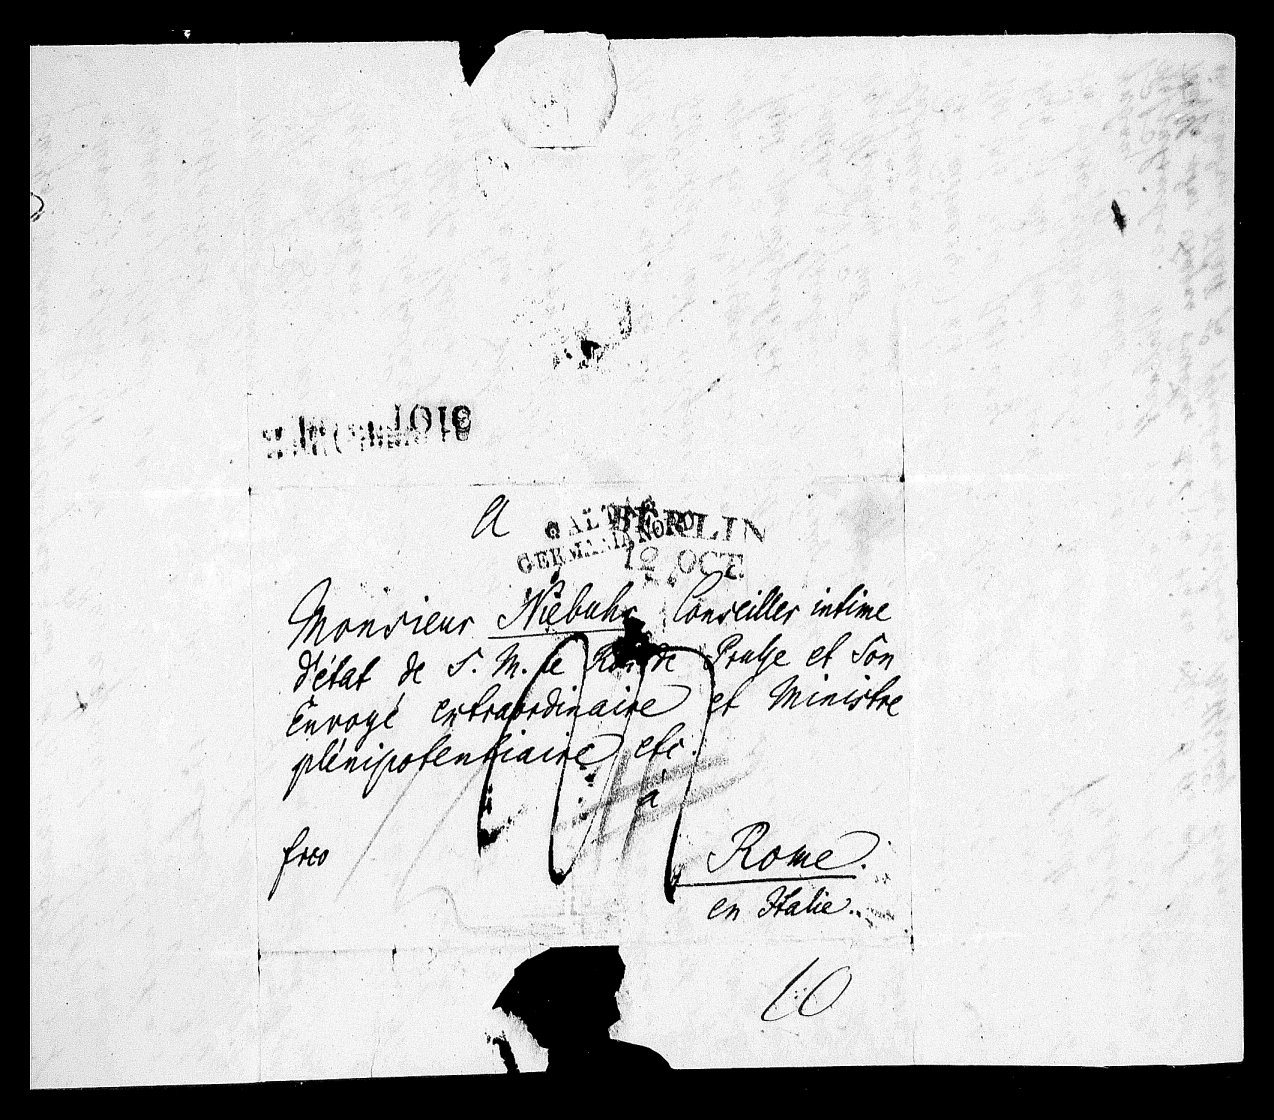 a
BERLIN
GERMANIA NORD
12 OCT
Monsieur Niebuhr Conseiller intime
d'état de S. M. le Roi de Prusse et Son
Envoyé extraordinaire et Ministre
plénipotentiaire etc.
à
frco
Rome.
en Italie.
10